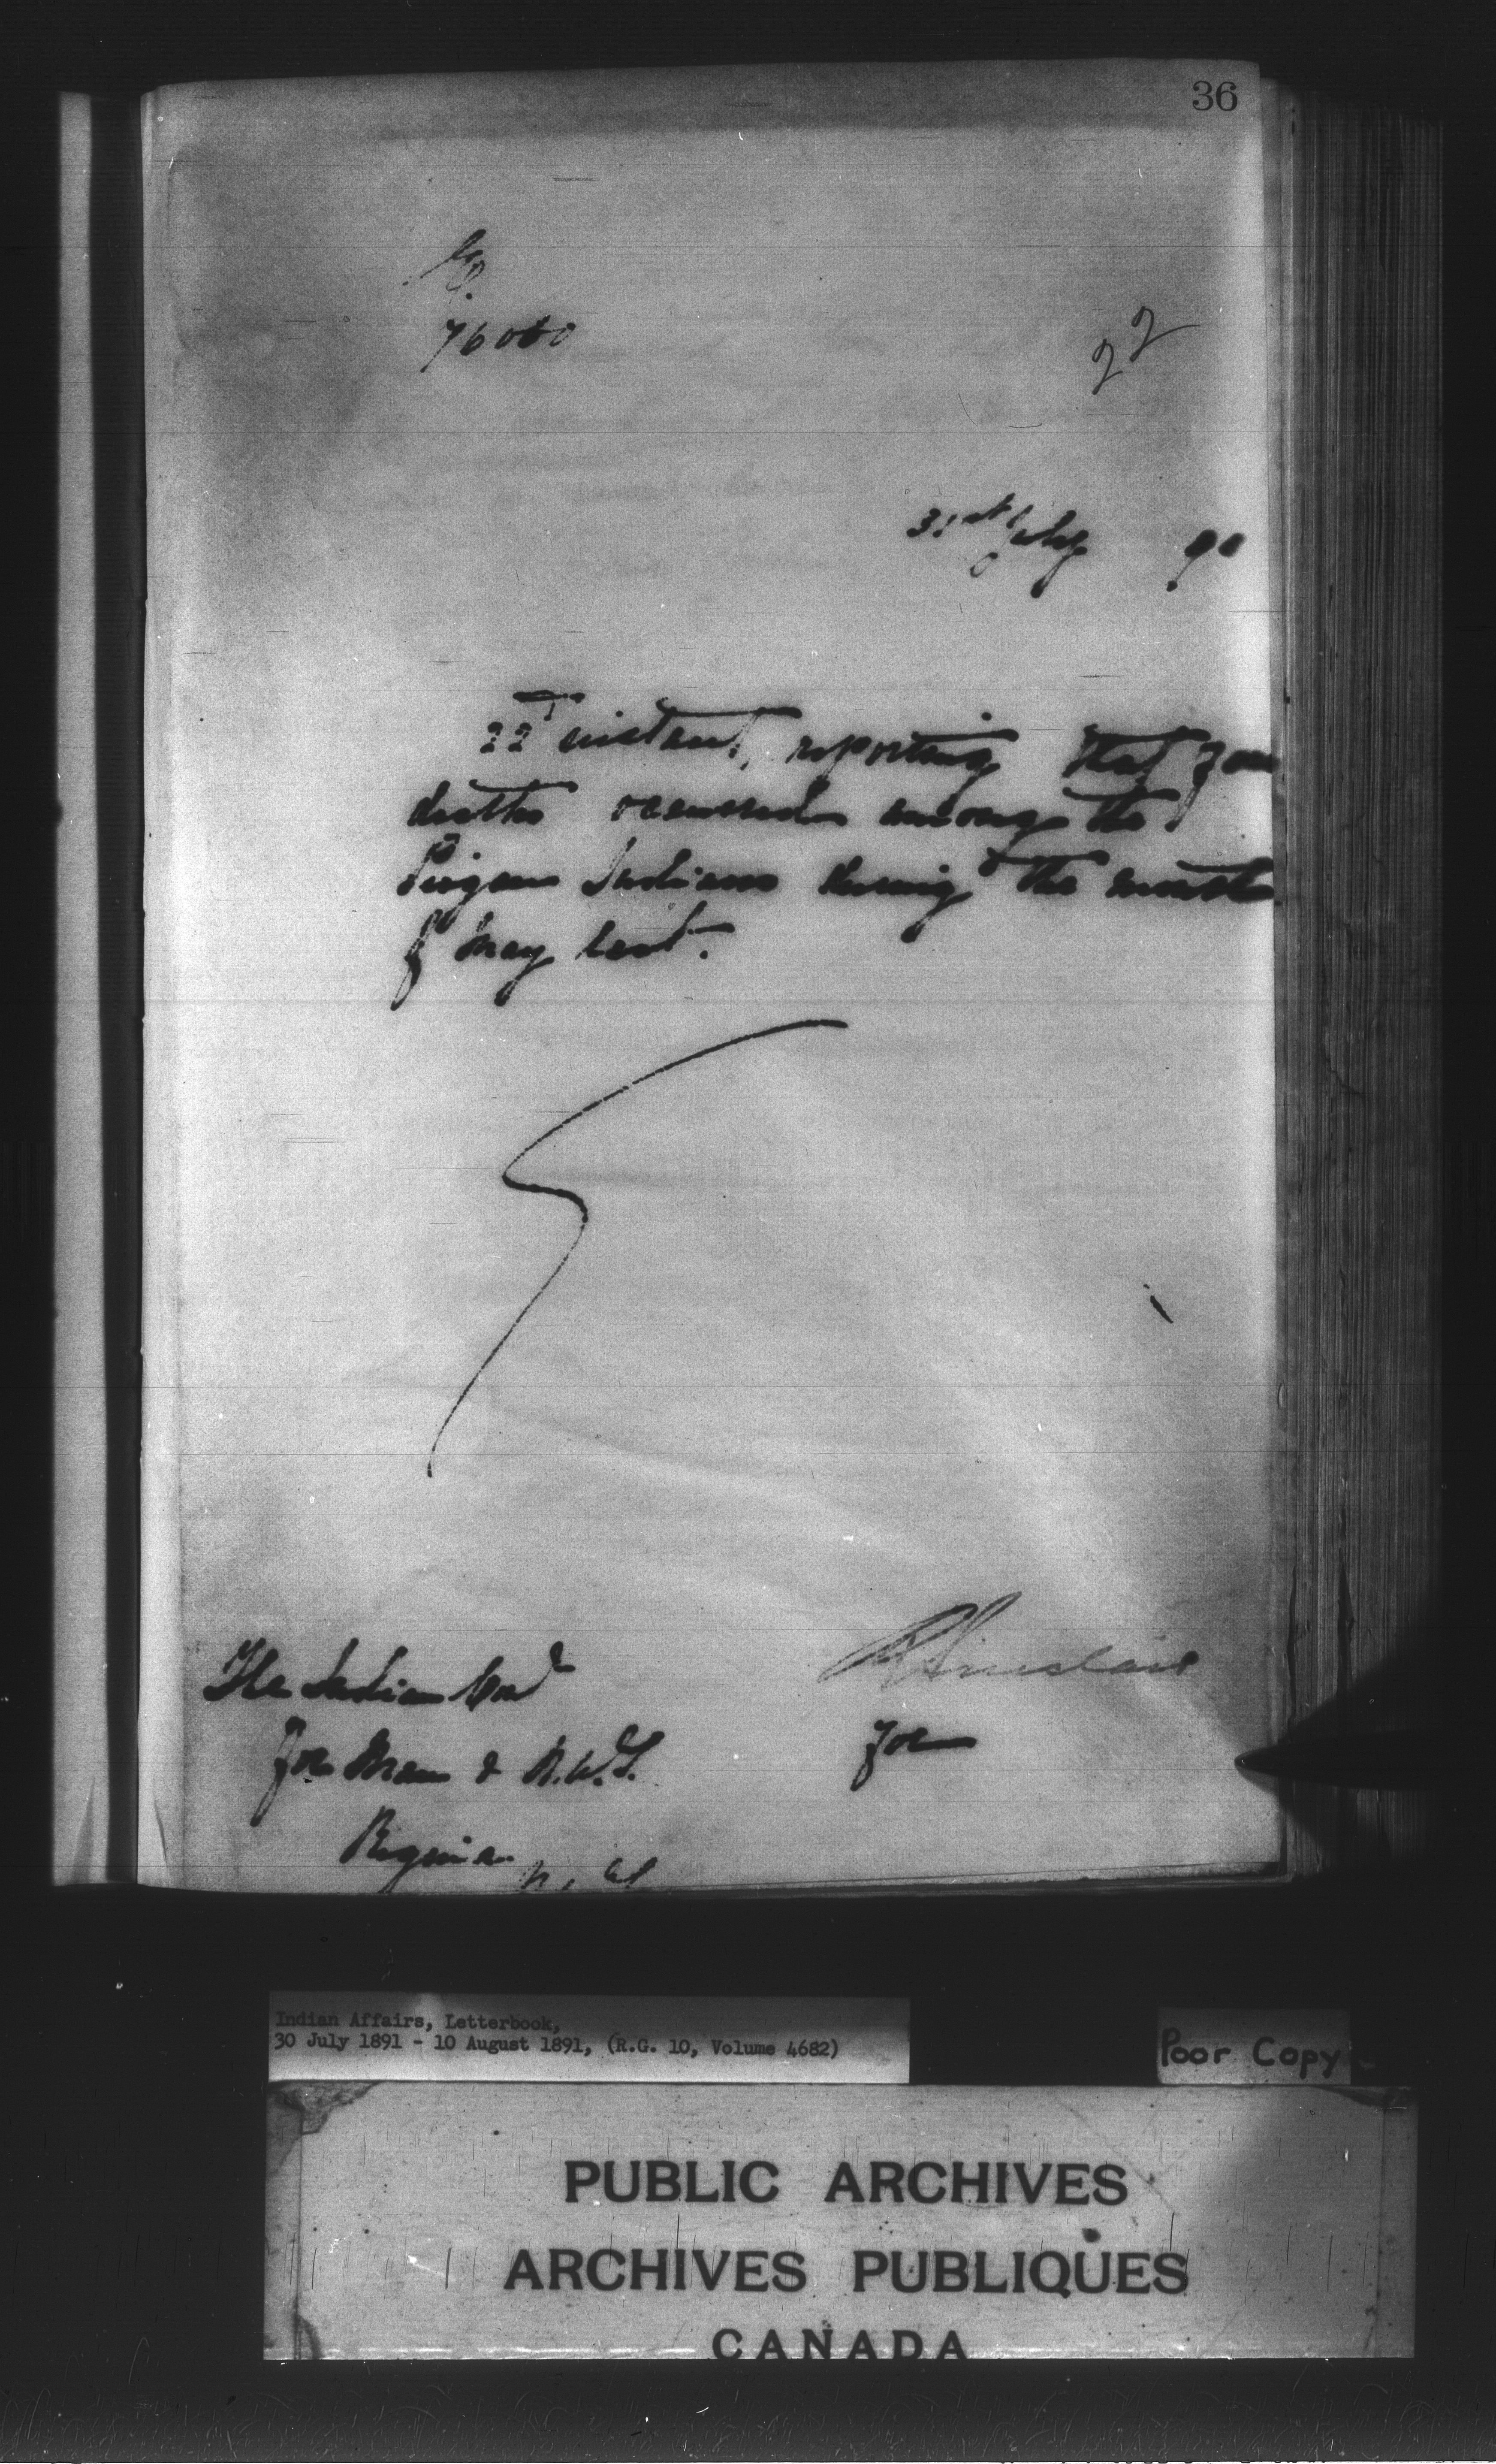 36
76000
22
31st July 91
22nd instant, reporting that four
deaths occurred among the
Piegan Indians during the month
of May last.
The Indian Comr
for Man & N.W.T.
Regina
R Sinclair
for
Indian Affairs, Letterbook,
30 July 1891 - 10 August 1891, (R.G. 10, Volume 4682)
Poor Copy
PUBLIC ARCHIVES
ARCHIVES PUBLIQUES
CANADA